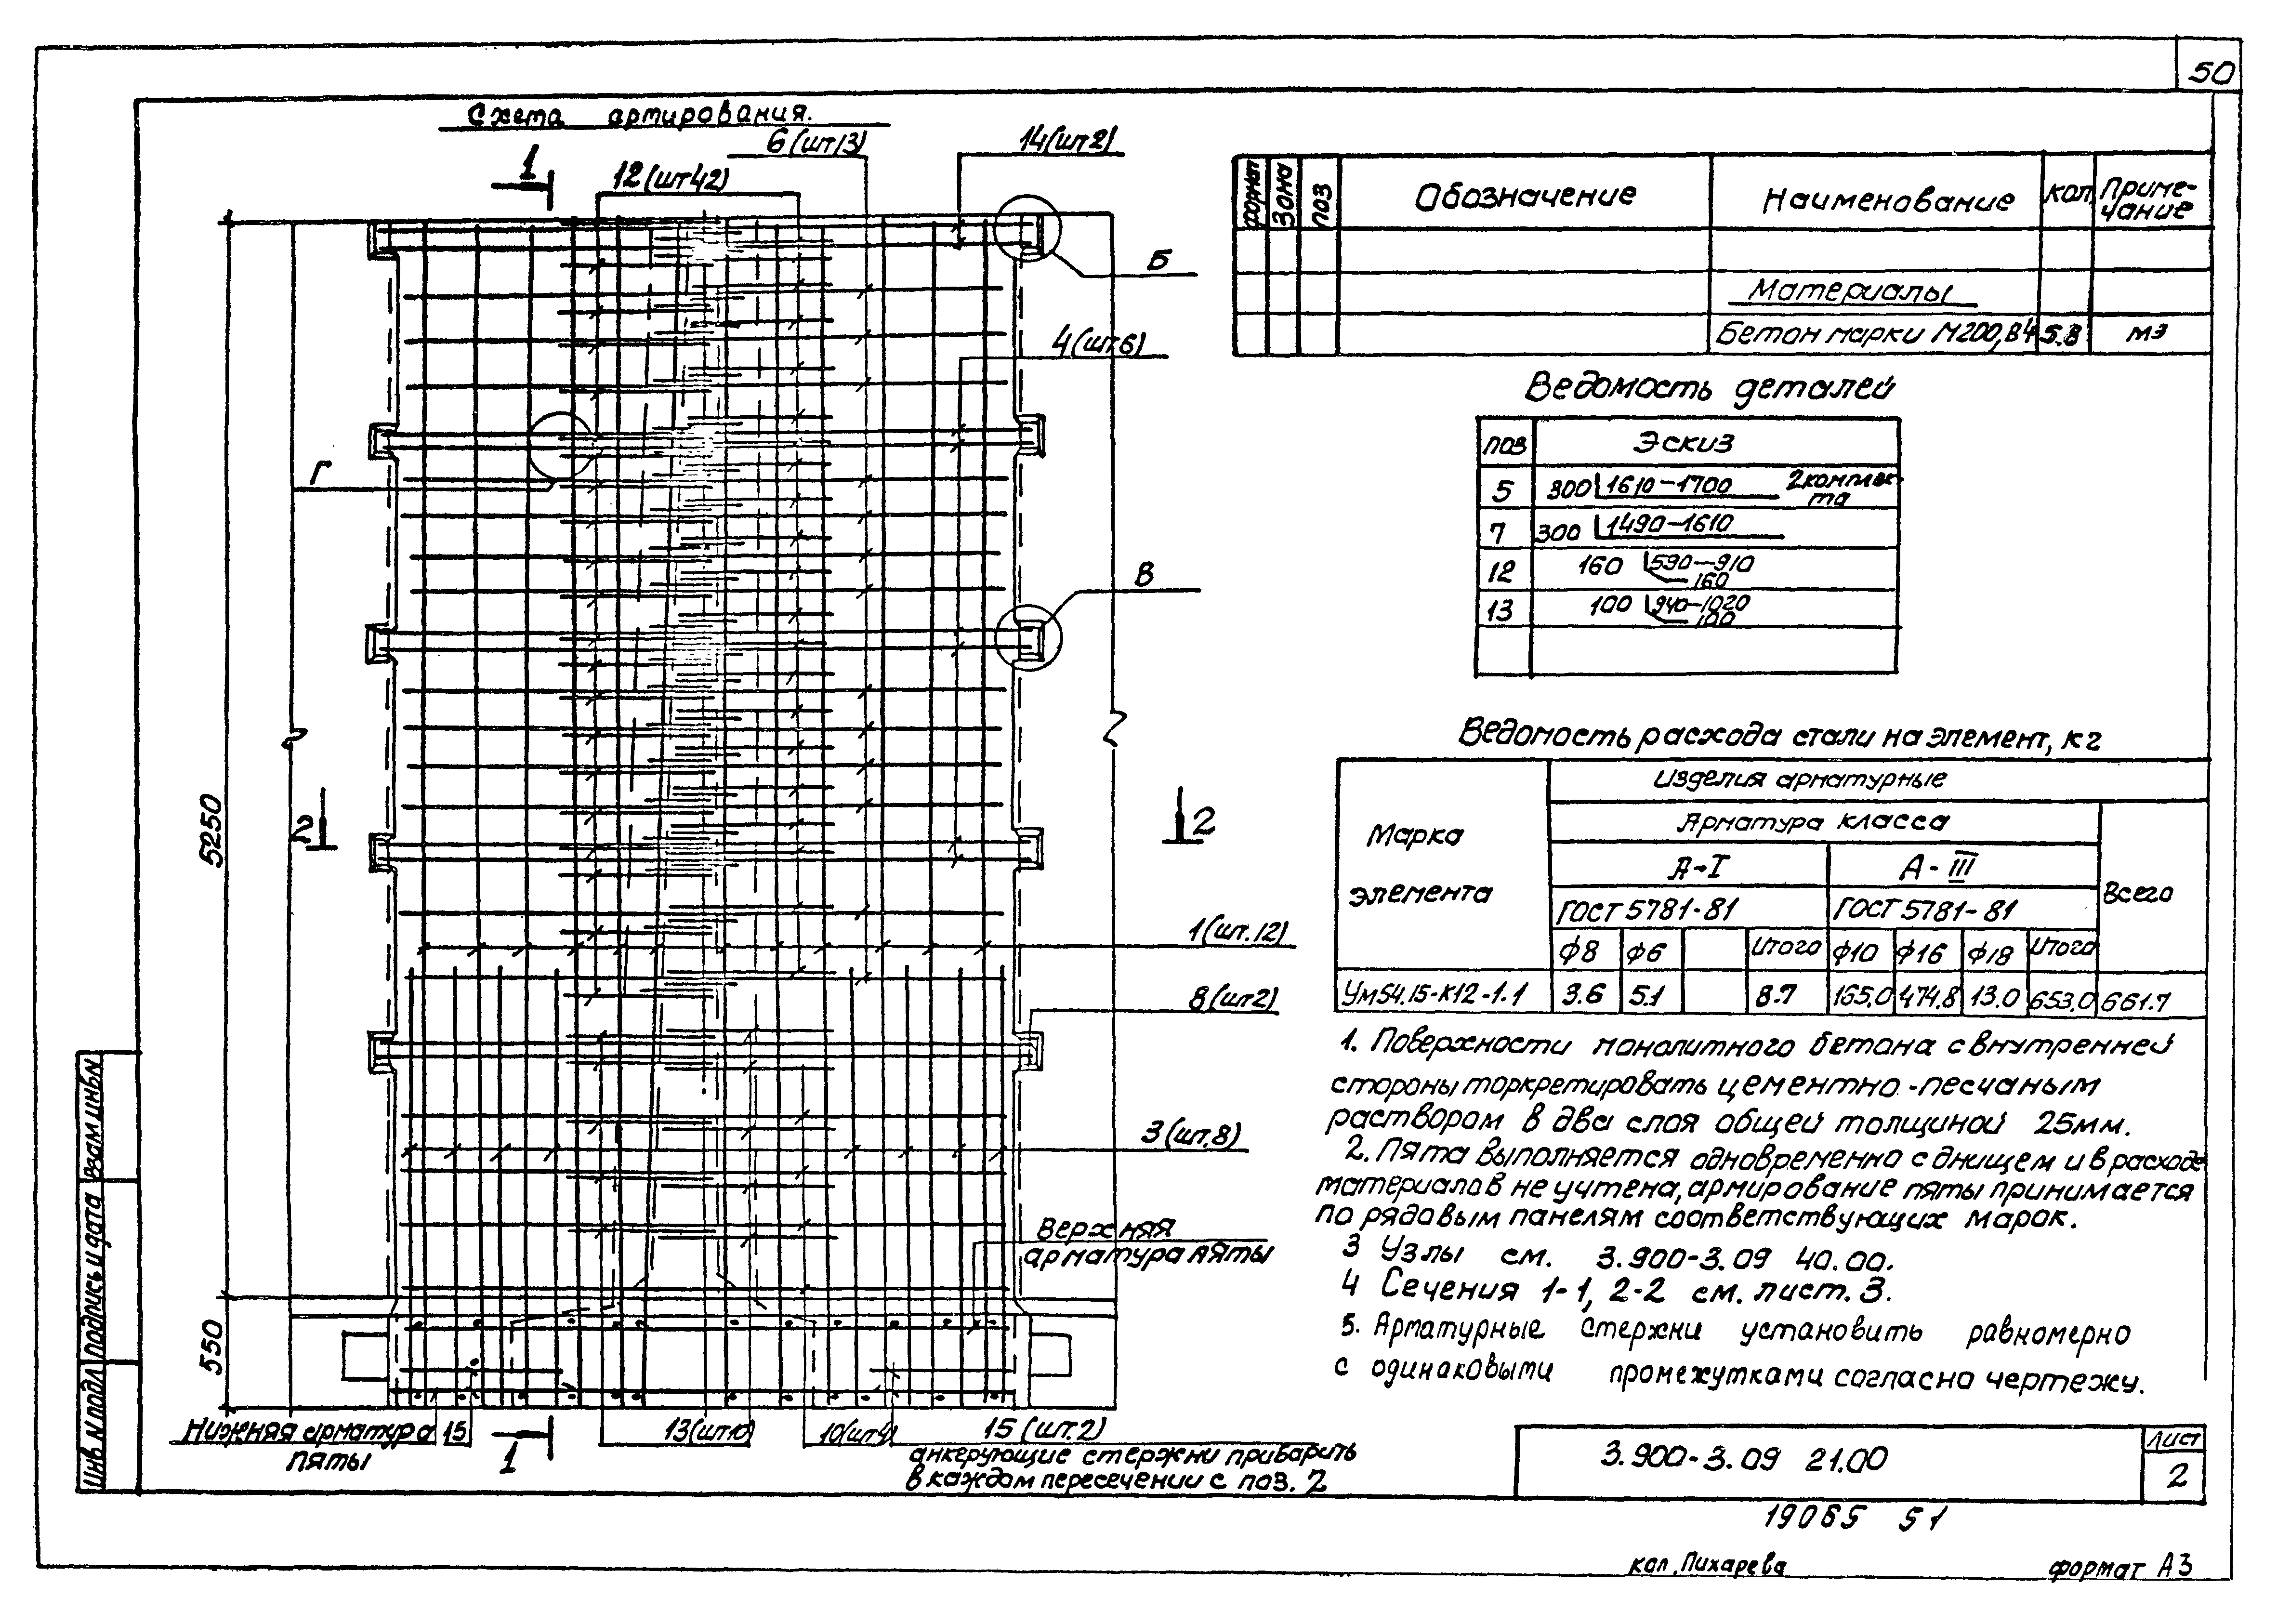 50
Схема армирования.
6 (шт13)
14(шт2)
1
12(шт42)
Б
4(шт.6)
Г
В
5250
2
2
1(шт.12)
8(шт2)
3(шт.8)
Верхняя
арматура пяты
550
Нижняя арматура
пяты
15
1
13(шт10)
10(шт4)
15 (шт.2)
анкерующие стержни приварить
в каждом пересечении с поз. 2
формат
Зона
поз
Обозначение
Наименование
кол.
Приме-
чание
Материалы
Бетон марки М200,В4
5.8
м3
Ведомость деталей
поз
Эскиз
5
300 1610-1700
2 комплек-
та
7
300 1490-1610
12
160 590-910
160
13
100 940-1020
100
Ведомость расхода стали на элемент, кг
Марка
элемента
Изделия арматурные
Арматура класса
А-I
А-III
Всего
ГОСТ 5781-81
ГОСТ 5781-81
ф8 ф6 Итого ф10 ф16 ф18 Итого
Ум54.15-К12-1.1 3.6 5.1 8.7 165,0 474,8 13.0 653,0 661.7
1. Поверхности монолитного бетона с внутренней
стороны торкретировать цементно-песчаным
раствором в два слоя общей толщиной 25мм.
2. Пята выполняется одновременно с днищем и в расходе
материалов не учтена, армирование пяты принимается
по рядовым панелям соответствующих марок.
3 Узлы см. 3.900-3.09 40.00.
4 Сечения 1-1, 2-2 см. лист. 3.
5. Арматурные стержни установить равномерно
с одинаковыми промежутками согласно чертежу.
Взам инв№
Подпись и дата
Инв № подл
3.900-3.09 21.00
Лист
2
19065 51
кол. Пихарева
формат А3